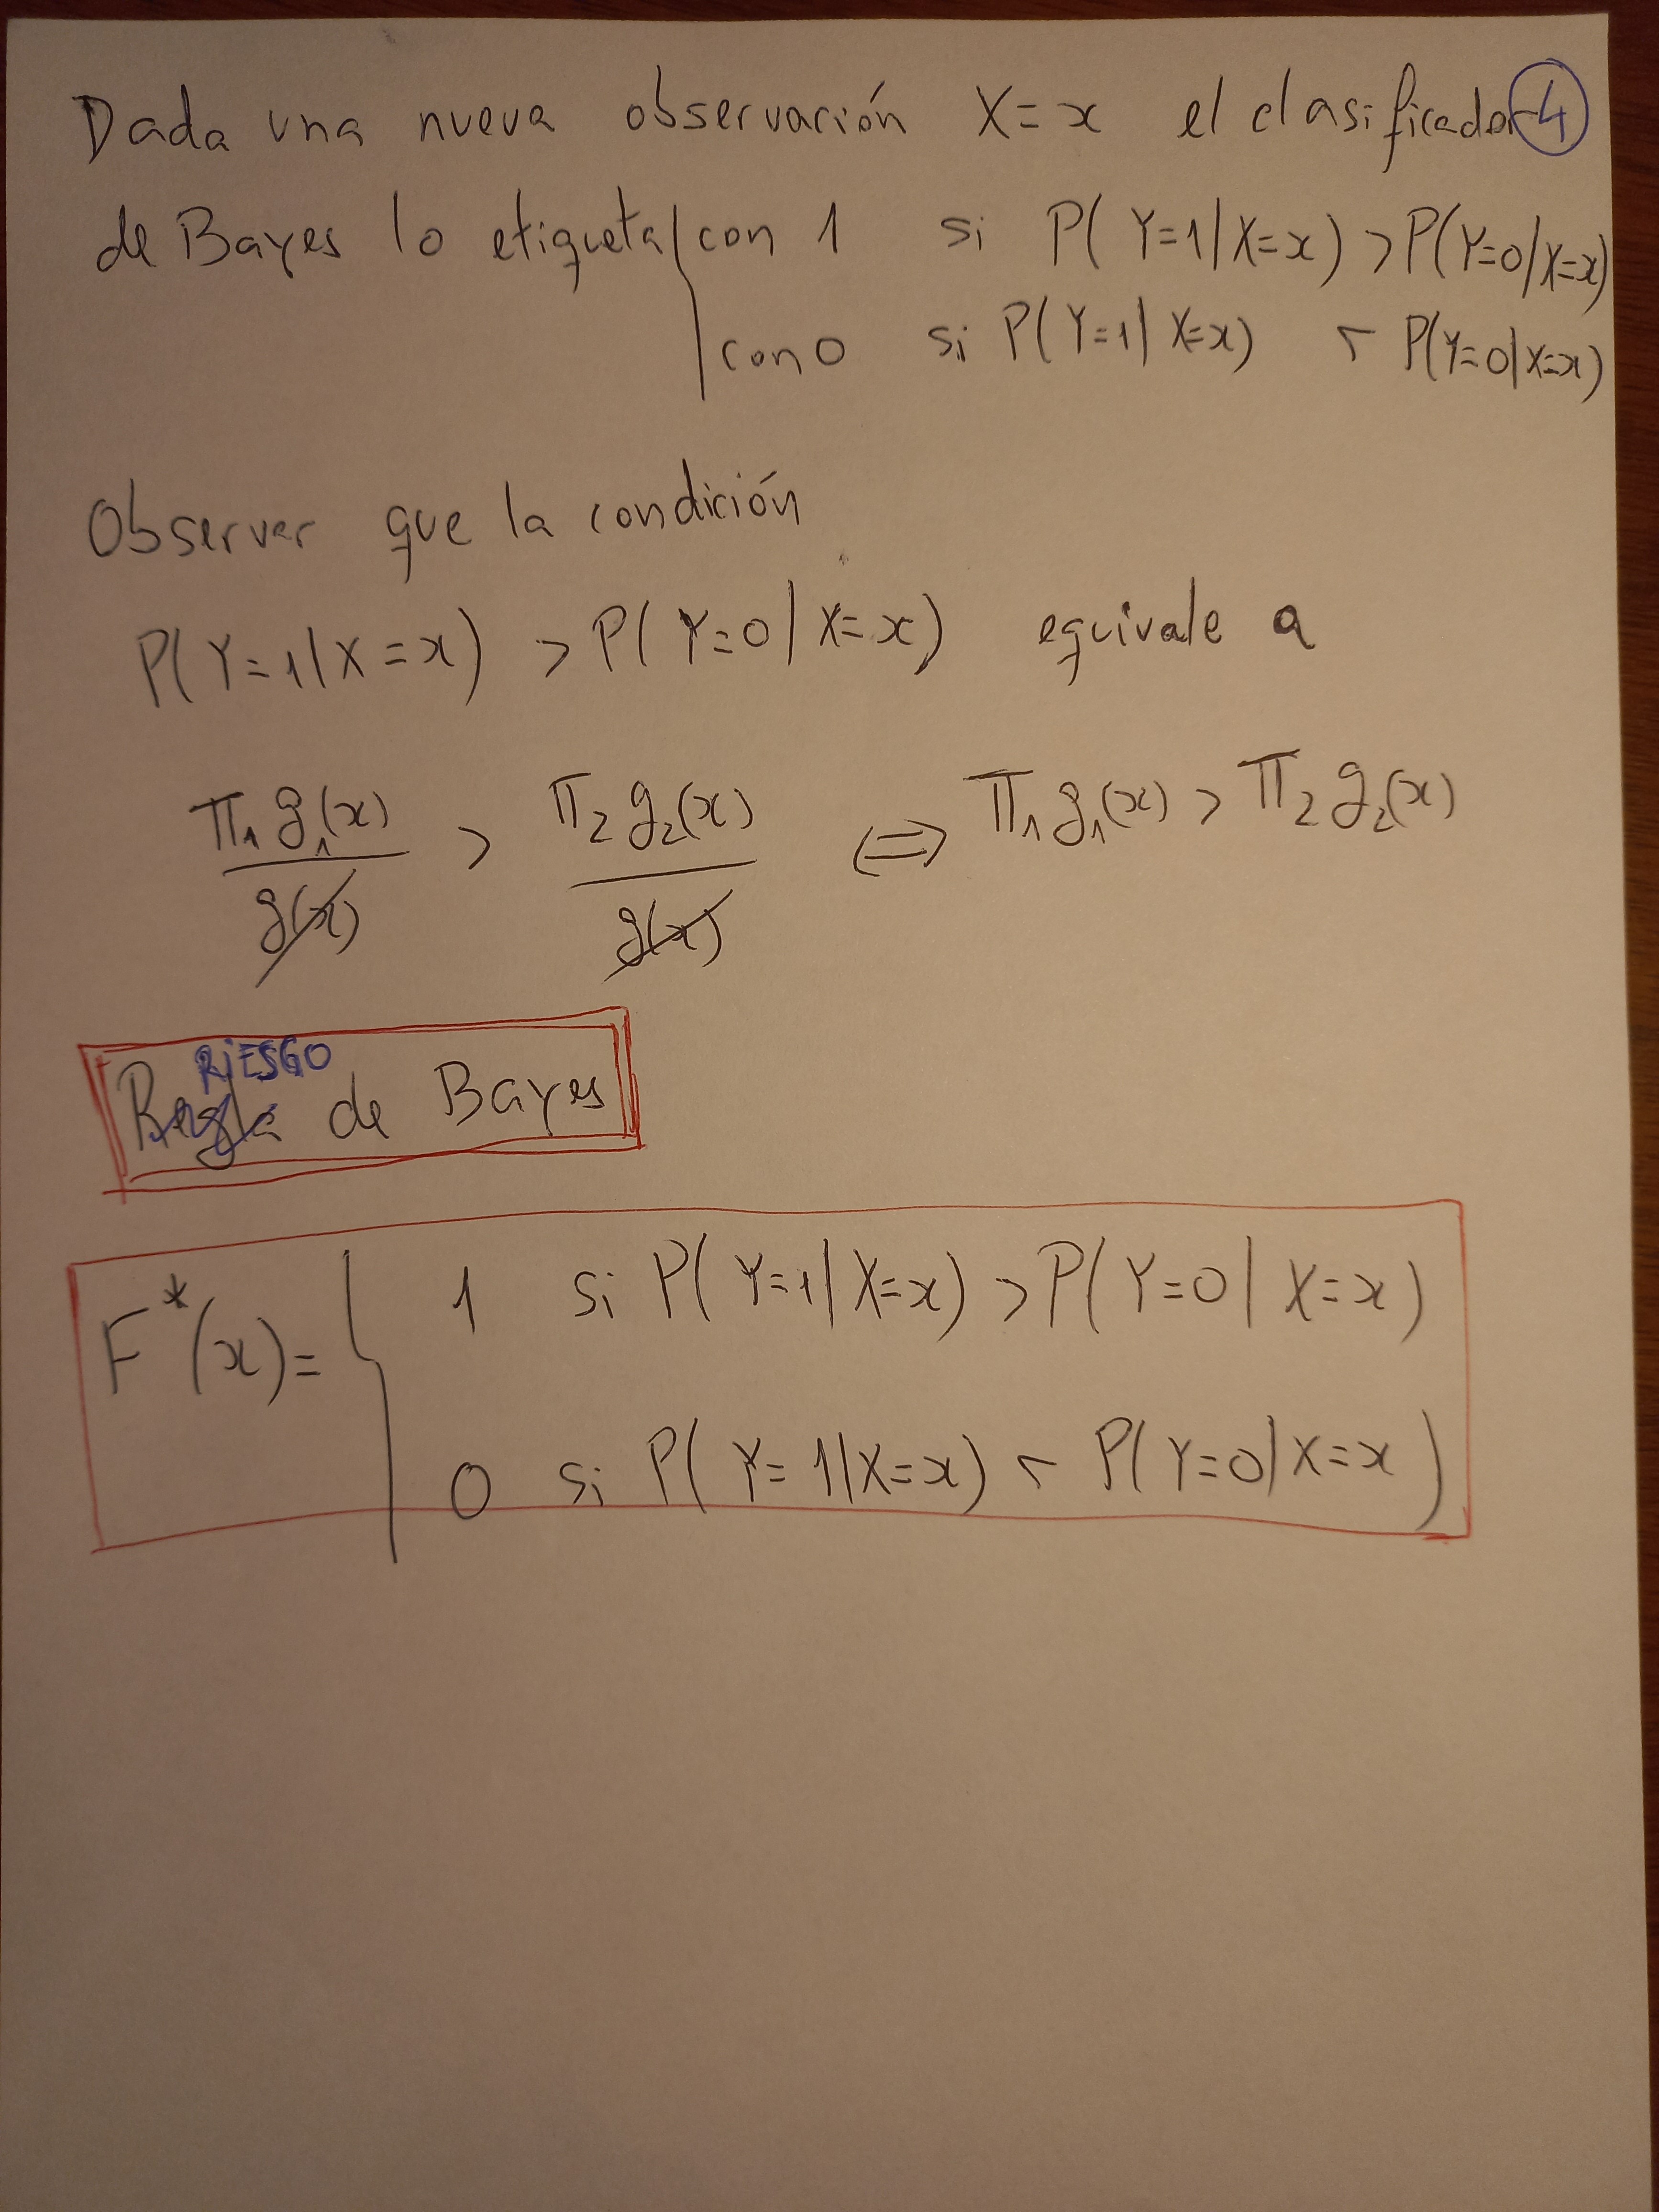 Dada una nueva observación X=x el clasificador 4
de Bayes lo etiqueta { con 1 si P(Y=1|X=x) > P(Y=0|X=x)
con 0 si P(Y=1|X=x) < P(Y=0|X=x)
Observar que la condición
P(Y=1|X=x) > P(Y=0|X=x) equivale a
π₁ g₁(x) / g(x) > π₂ g₂(x) / g(x) ⇔ π₁ g₁(x) > π₂ g₂(x)
RiESGO
Regla de Bayes
F*(x) = { 1 si P(Y=1|X=x) > P(Y=0|X=x)
0 si P(Y=1|X=x) < P(Y=0|X=x)